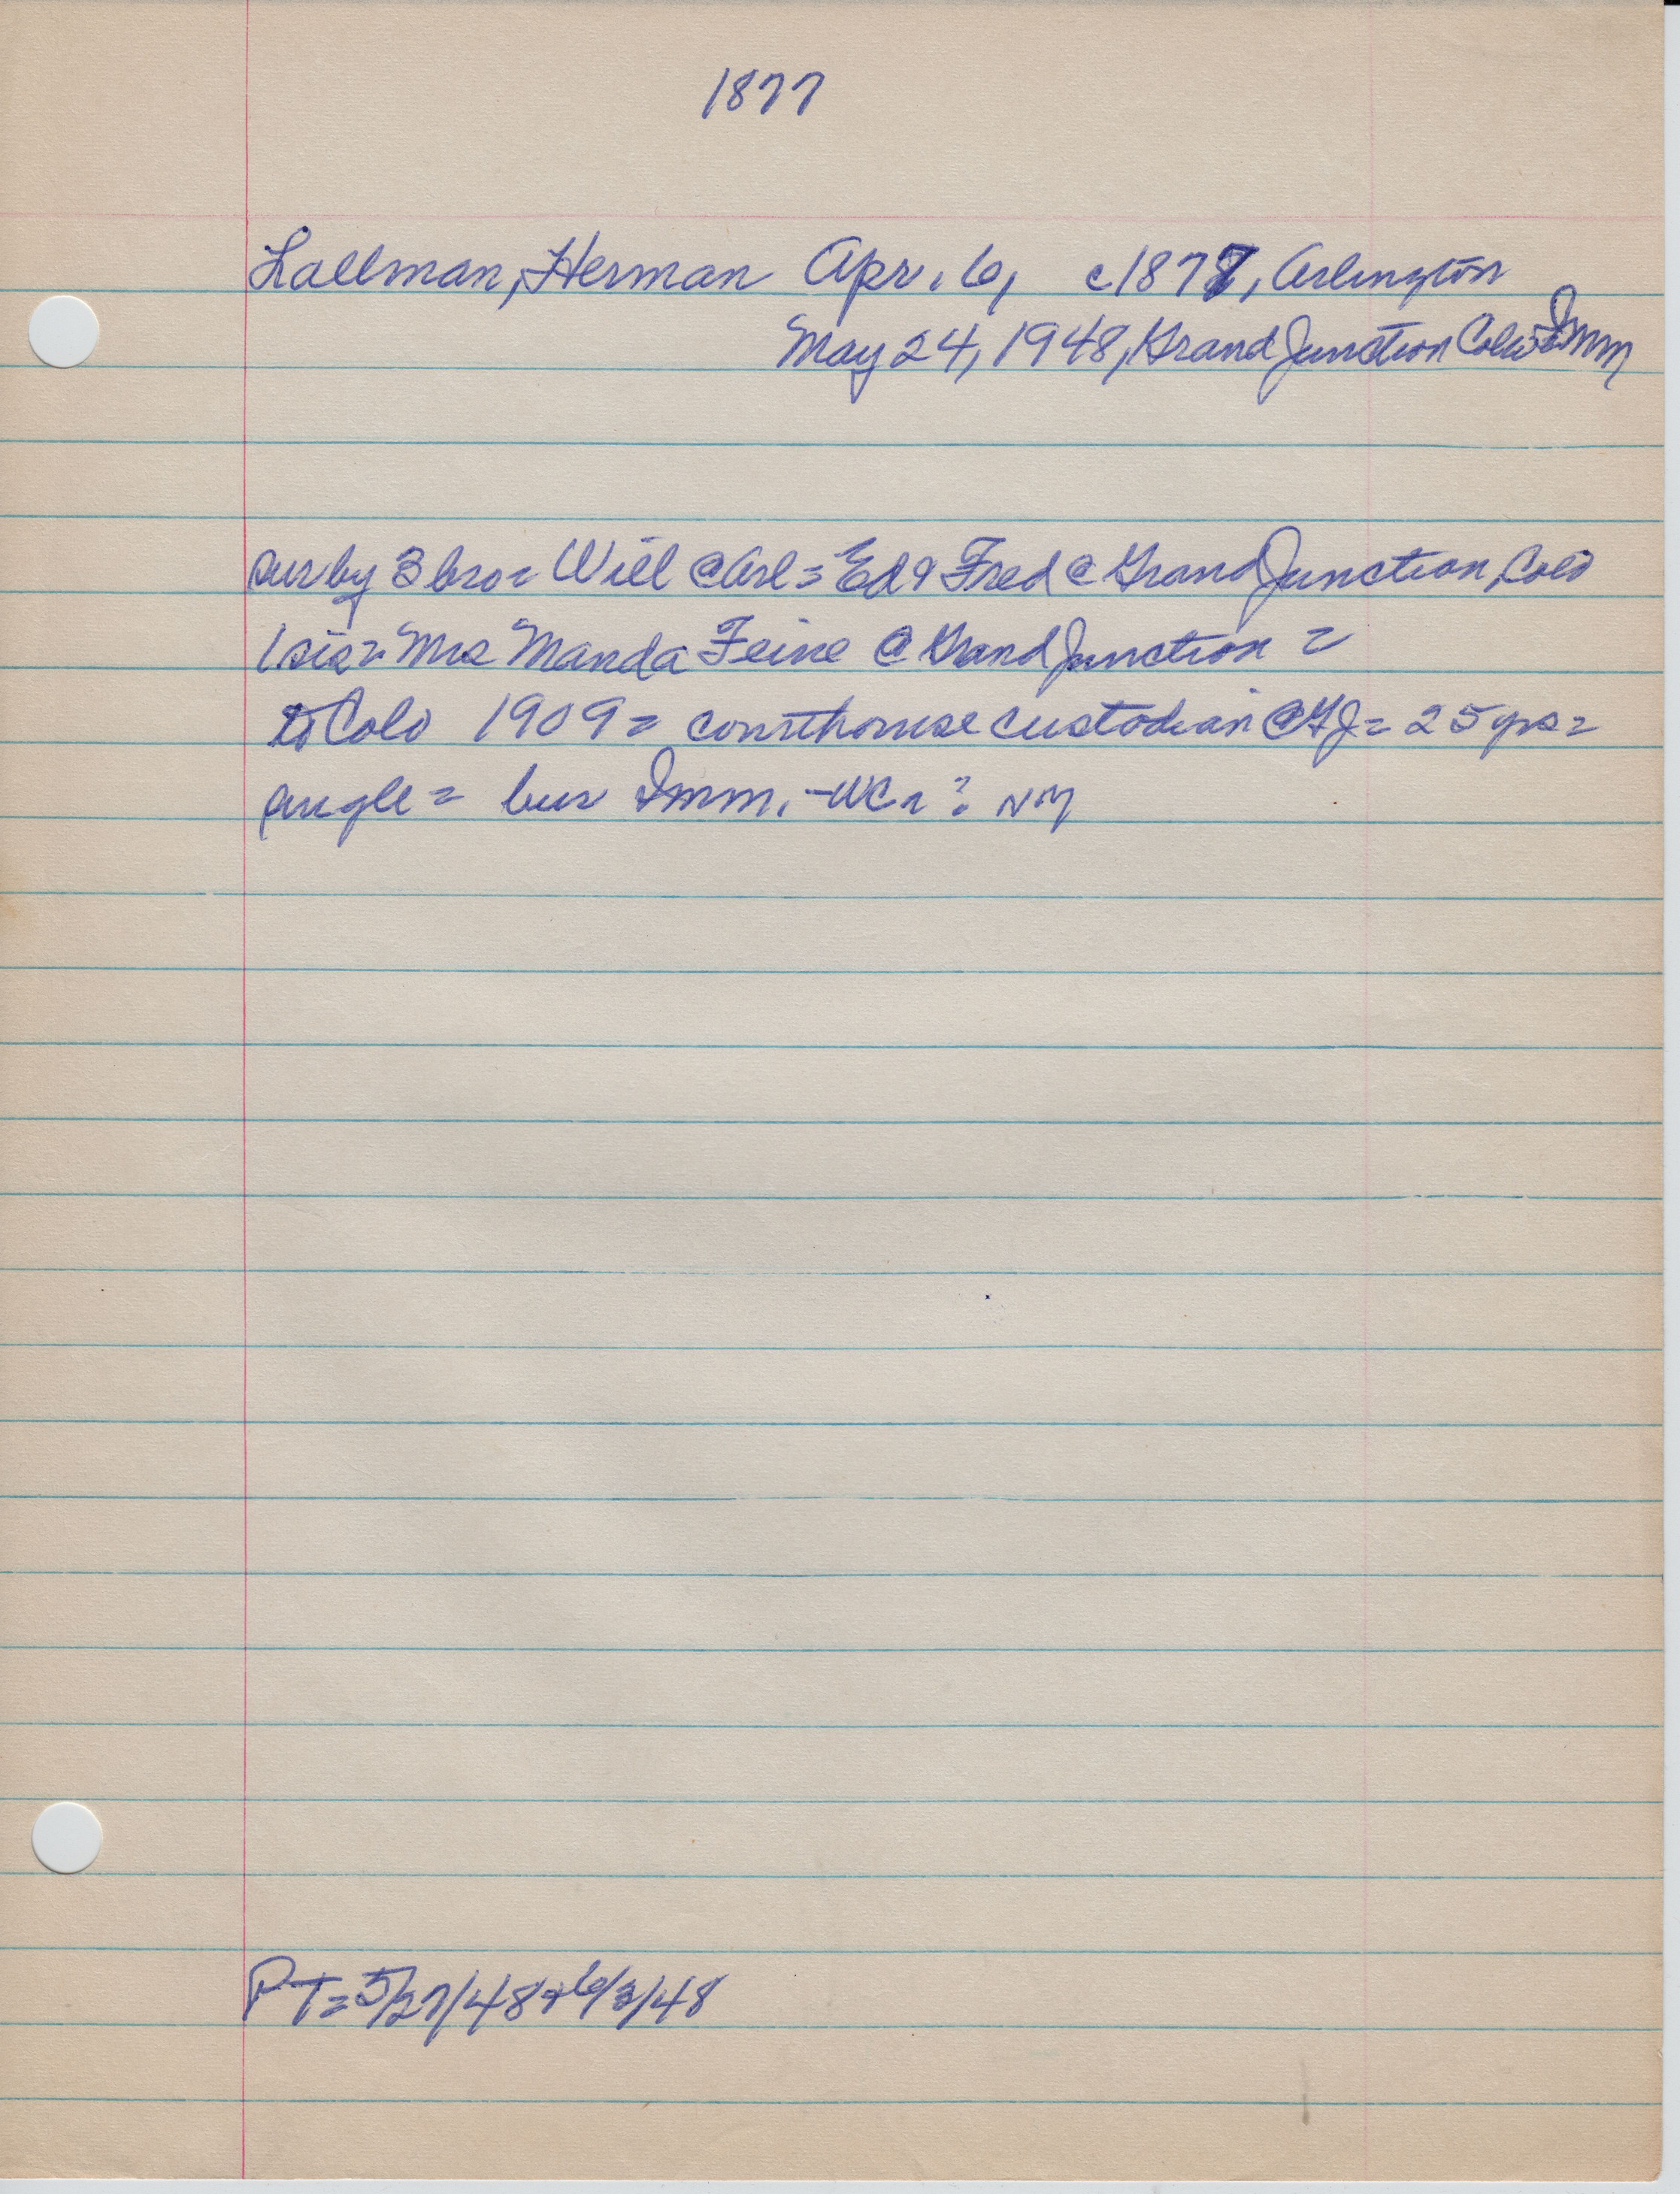 1877
Lallman, Herman Apr. 6, c1877, Arlington
May 24, 1948, Grand Junction Colo = Imm
sur by 3 bro = Will @ Arl = Ed & Fred @ Grand Junction, Colo
1 sis = Mrs Manda Feine @ Grand Junction =
to Colo 1909 = courthouse custodian @ GJ = 25 yrs =
single = bur Imm. - WCn? NM
PT = 5/27/48 & 6/3/48